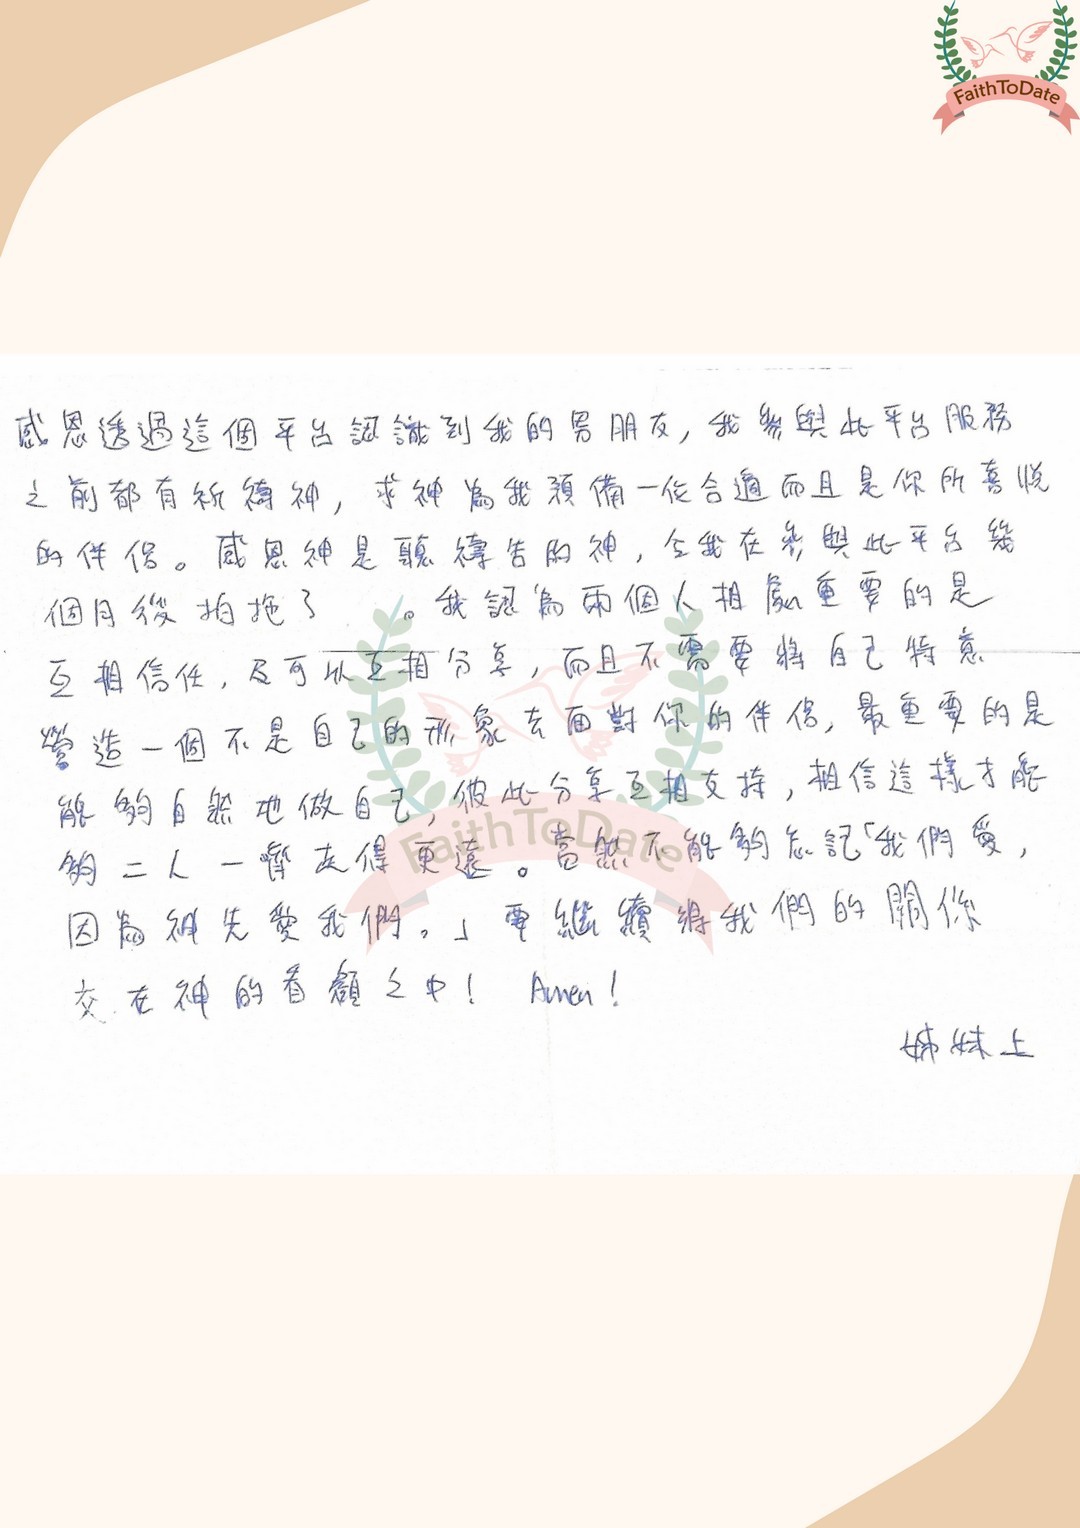 FaithToDate
感恩透過這個平台認識到我的男朋友, 我參與此平台服務
之前都有祈禱神, 求神為我預備一位合適而且是你所喜悅
的伴侶。感恩神是聽禱告的神, 令我在參與此平台幾
個月後拍拖了 。我認為兩個人相處重要的是
互相信任, 及可以互相分享, 而且不需要將自己特意
營造一個不是自己的形象去面對你的伴侶, 最重要的是
能夠自然地做自己, 彼此分享互相支持, 相信這樣才能
夠二人一齊走得更遠。當然不能夠忘記「我們愛,
因為神先愛我們。」要繼續將我們的關係
交在神的看顧之中! Amen!
姊妹上
FaithToDate